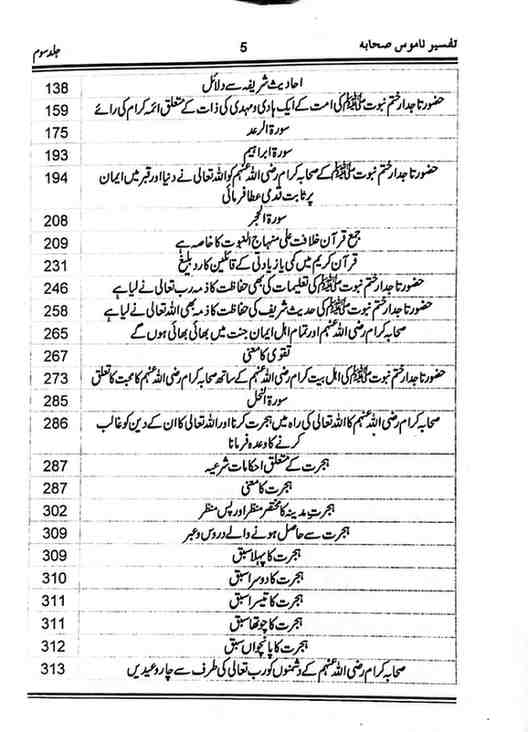 تفسیر ناموس صحابہ 5 جلد سوم
احادیث شریفہ سے دلائل 138
حضور تاجدار ختم نبوت ﷺ کی امت کے ایک ہادی و مہدی کی ذات کے متعلق ائمہ کرام کی رائے 159
سورۃ الرعد 175
سورۃ ابراہیم 193
حضور تاجدار ختم نبوت ﷺ کے صحابہ کرام رضی اللہ عنہم کو اللہ تعالی نے دنیا اور قبر میں ایمان 194
پر ثابت قدمی عطا فرمائی
سورۃ الحجر 208
جمع قرآن خلافت علی منہاج النبوت کا خاصہ ہے 209
قرآن کریم میں کمی یا زیادتی کے قائلین کا رد بلیغ 231
حضور تاجدار ختم نبوت ﷺ کی تعلیمات کی بھی حفاظت کا ذمہ رب تعالی نے لیا ہے 246
حضور تاجدار ختم نبوت ﷺ کی حدیث شریف کی حفاظت کا ذمہ بھی اللہ تعالی نے لیا ہے 258
صحابہ کرام رضی اللہ عنہم اور تمام اہل ایمان جنت میں بھائی بھائی ہوں گے 265
تقوی کا معنی 267
حضور تاجدار ختم نبوت ﷺ کی اہل بیت کرام رضی اللہ عنہم کے ساتھ صحابہ کرام رضی اللہ عنہم کا محبت کا تعلق 273
سورۃ النحل 285
صحابہ کرام رضی اللہ عنہم کا اللہ تعالی کی راہ میں ہجرت کرنا اور اللہ تعالی کا ان کے دین کو غالب 286
کرنے کا وعدہ فرمانا
ہجرت کے متعلق احکامات شرعیہ 287
ہجرت کا معنی 287
ہجرت مدینہ کا مختصر منظر اور پس منظر 302
ہجرت سے حاصل ہونے والے دروس و عبر 309
ہجرت کا پہلا سبق 309
ہجرت کا دوسرا سبق 310
ہجرت کا تیسرا سبق 311
ہجرت کا چوتھا سبق 311
ہجرت کا پانچواں سبق 312
صحابہ کرام رضی اللہ عنہم کے دشمنوں کو رب تعالی کی طرف سے چار وعیدیں 313